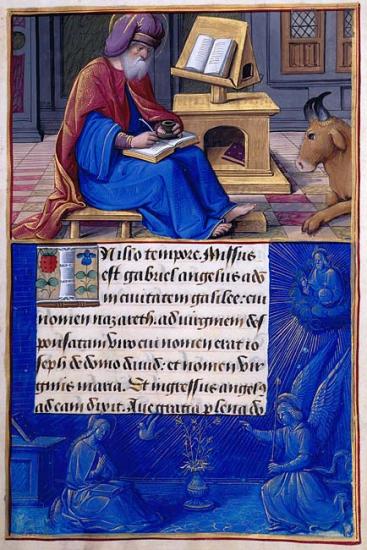 In illo tempore. Missus
est gabriel angelus a do
in civitatem galilee: cui
nomen nazareth: ad virginem des
ponsatam viro cui nomen erat io
seph de domo david: et nomen vir
ginis maria. Et ingressus angelus
ad eam dixit. Ave gratia plena do